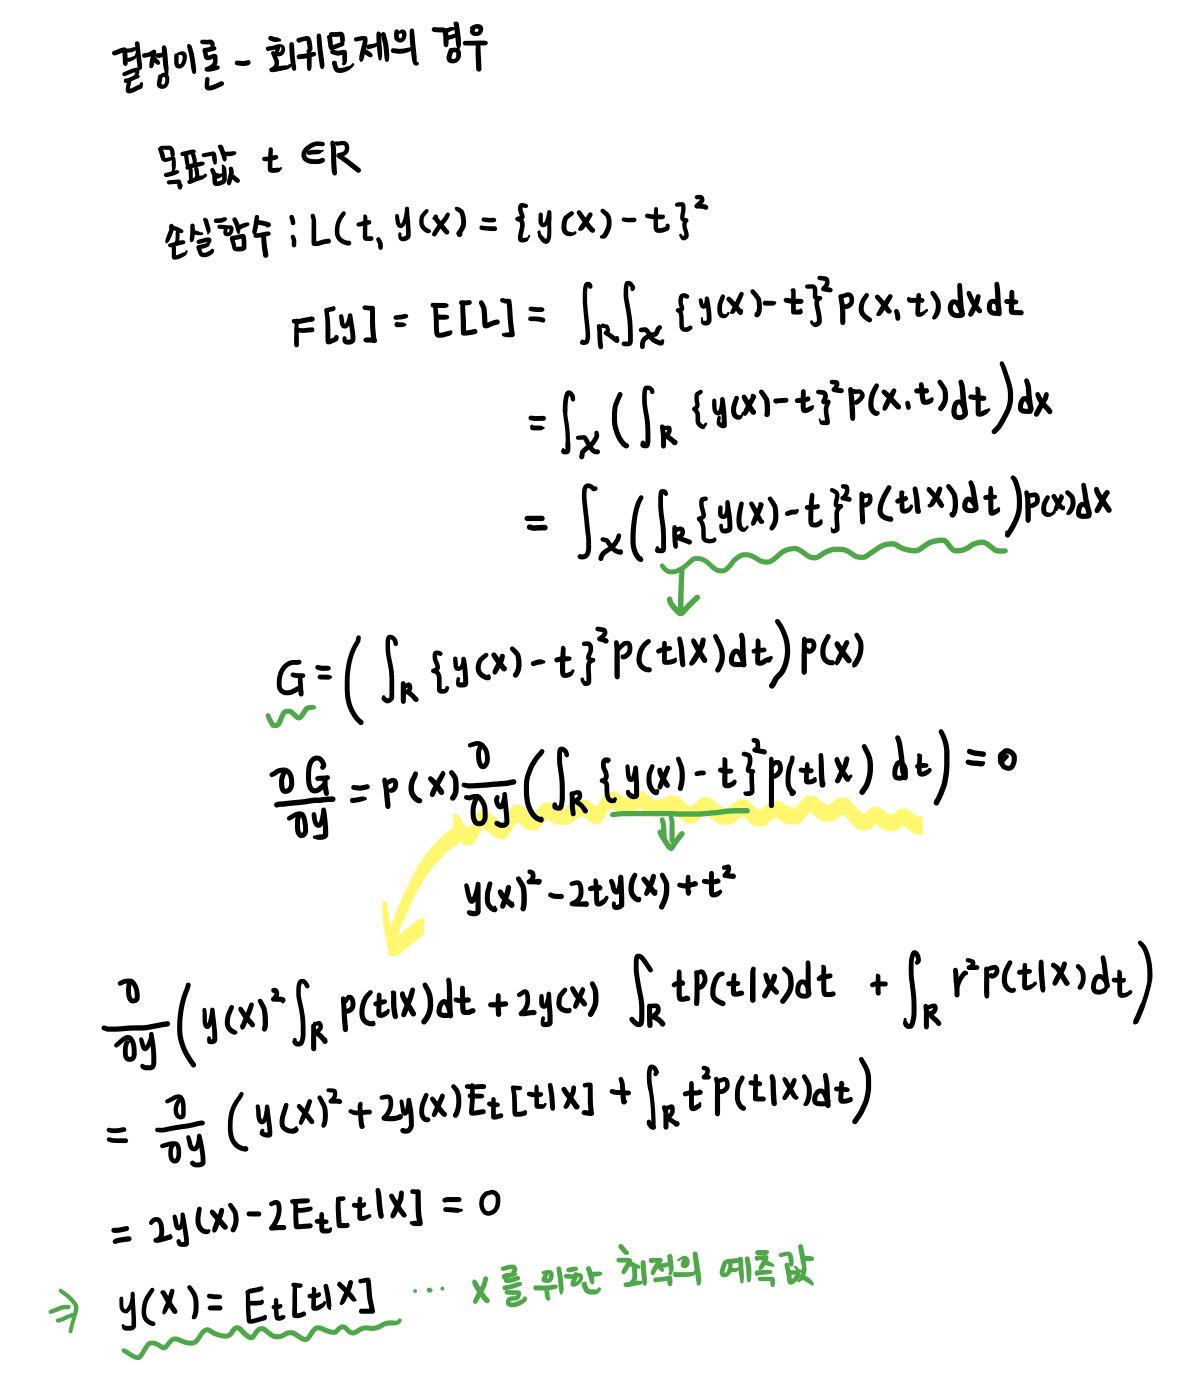 결정이론 - 회귀문제의 경우
목표값 t ∈ R
손실함수 : L(t, y(x) = {y(x) - t}²
F[y] = E[L] = ∫_R ∫_X {y(x) - t}² p(x, t) dx dt
= ∫_X ( ∫_R {y(x) - t}² p(x, t) dt ) dx
= ∫_X ( ∫_R {y(x) - t}² p(t|x) dt ) p(x) dx
G = ( ∫_R {y(x) - t}² p(t|x) dt ) p(x)
∂G/∂y = p(x) ∂/∂y ( ∫_R {y(x) - t}² p(t|x) dt ) = 0
y(x)² - 2ty(x) + t²
∂/∂y ( y(x)² ∫_R p(t|x) dt + 2y(x) ∫_R t p(t|x) dt + ∫_R r² p(t|x) dt )
= ∂/∂y ( y(x)² + 2y(x) E_t[t|x] + ∫_R t² p(t|x) dt )
= 2y(x) - 2E_t[t|x] = 0
⇒ y(x) = E_t[t|x] ... x를 위한 최적의 예측값